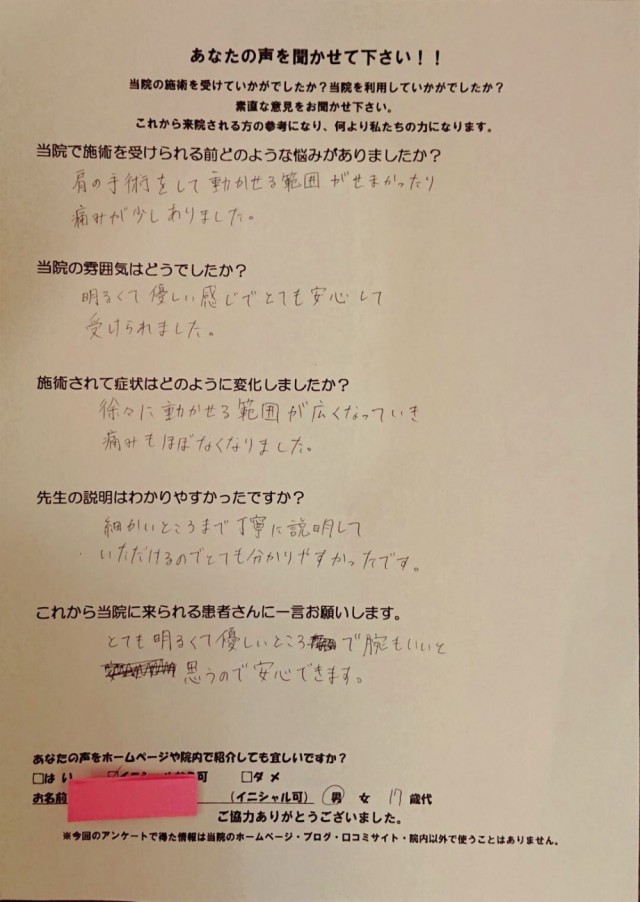 あなたの声を聞かせて下さい！！
当院の施術を受けていかがでしたか？当院を利用していかがでしたか？
素直な意見をお聞かせ下さい。
これから来院される方の参考になり、何より私たちの力になります。
当院で施術を受けられる前どのような悩みがありましたか？
肩の手術をして動かせる範囲がせまかったり
痛みが少しありました。
当院の雰囲気はどうでしたか？
明るくて優しい感じでとても安心して
受けられました。
施術されて症状はどのように変化しましたか？
徐々に動かせる範囲が広くなっていき
痛みもほぼなくなりました。
先生の説明はわかりやすかったですか？
細かいところまで丁寧に説明して
いただけるのでとても分かりやすかったです。
これから当院に来られる患者さんに一言お願いします。
とても明るくて優しいところで腕もいいと
思うので安心できます。
あなたの声をホームページや院内で紹介しても宜しいですか？
□はい ☑イニシャルなら可 □ダメ
お名前 (イニシャル可) 男 女 17歳代
ご協力ありがとうございました。
※今回のアンケートで得た情報は当院のホームページ・ブログ・口コミサイト・院内以外で使うことはありません。